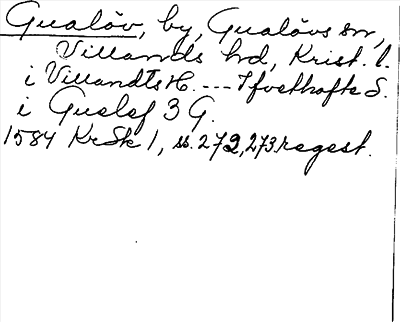 Gualöv, by, Gualövs sn,
Villands hd, Krist. l.
i Villandtz H. --- Ifvethofte S.
i Gualef 3 G.
1584 KrSk 1, ss. 272, 273 regest.